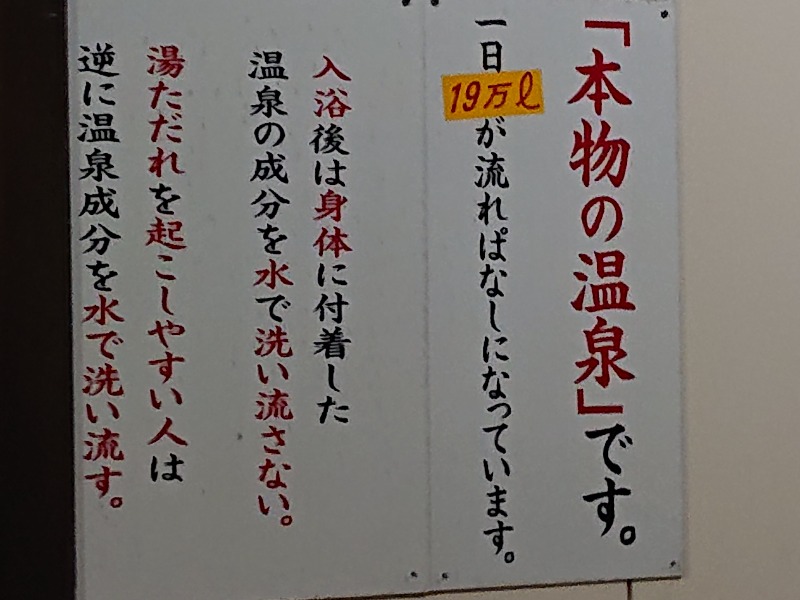 「本物の温泉」です。
一日19万ℓが流れぱなしになっています。
入浴後は身体に付着した
温泉の成分を水で洗い流さない。
湯ただれを起こしやすい人は
逆に温泉成分を水で洗い流す。